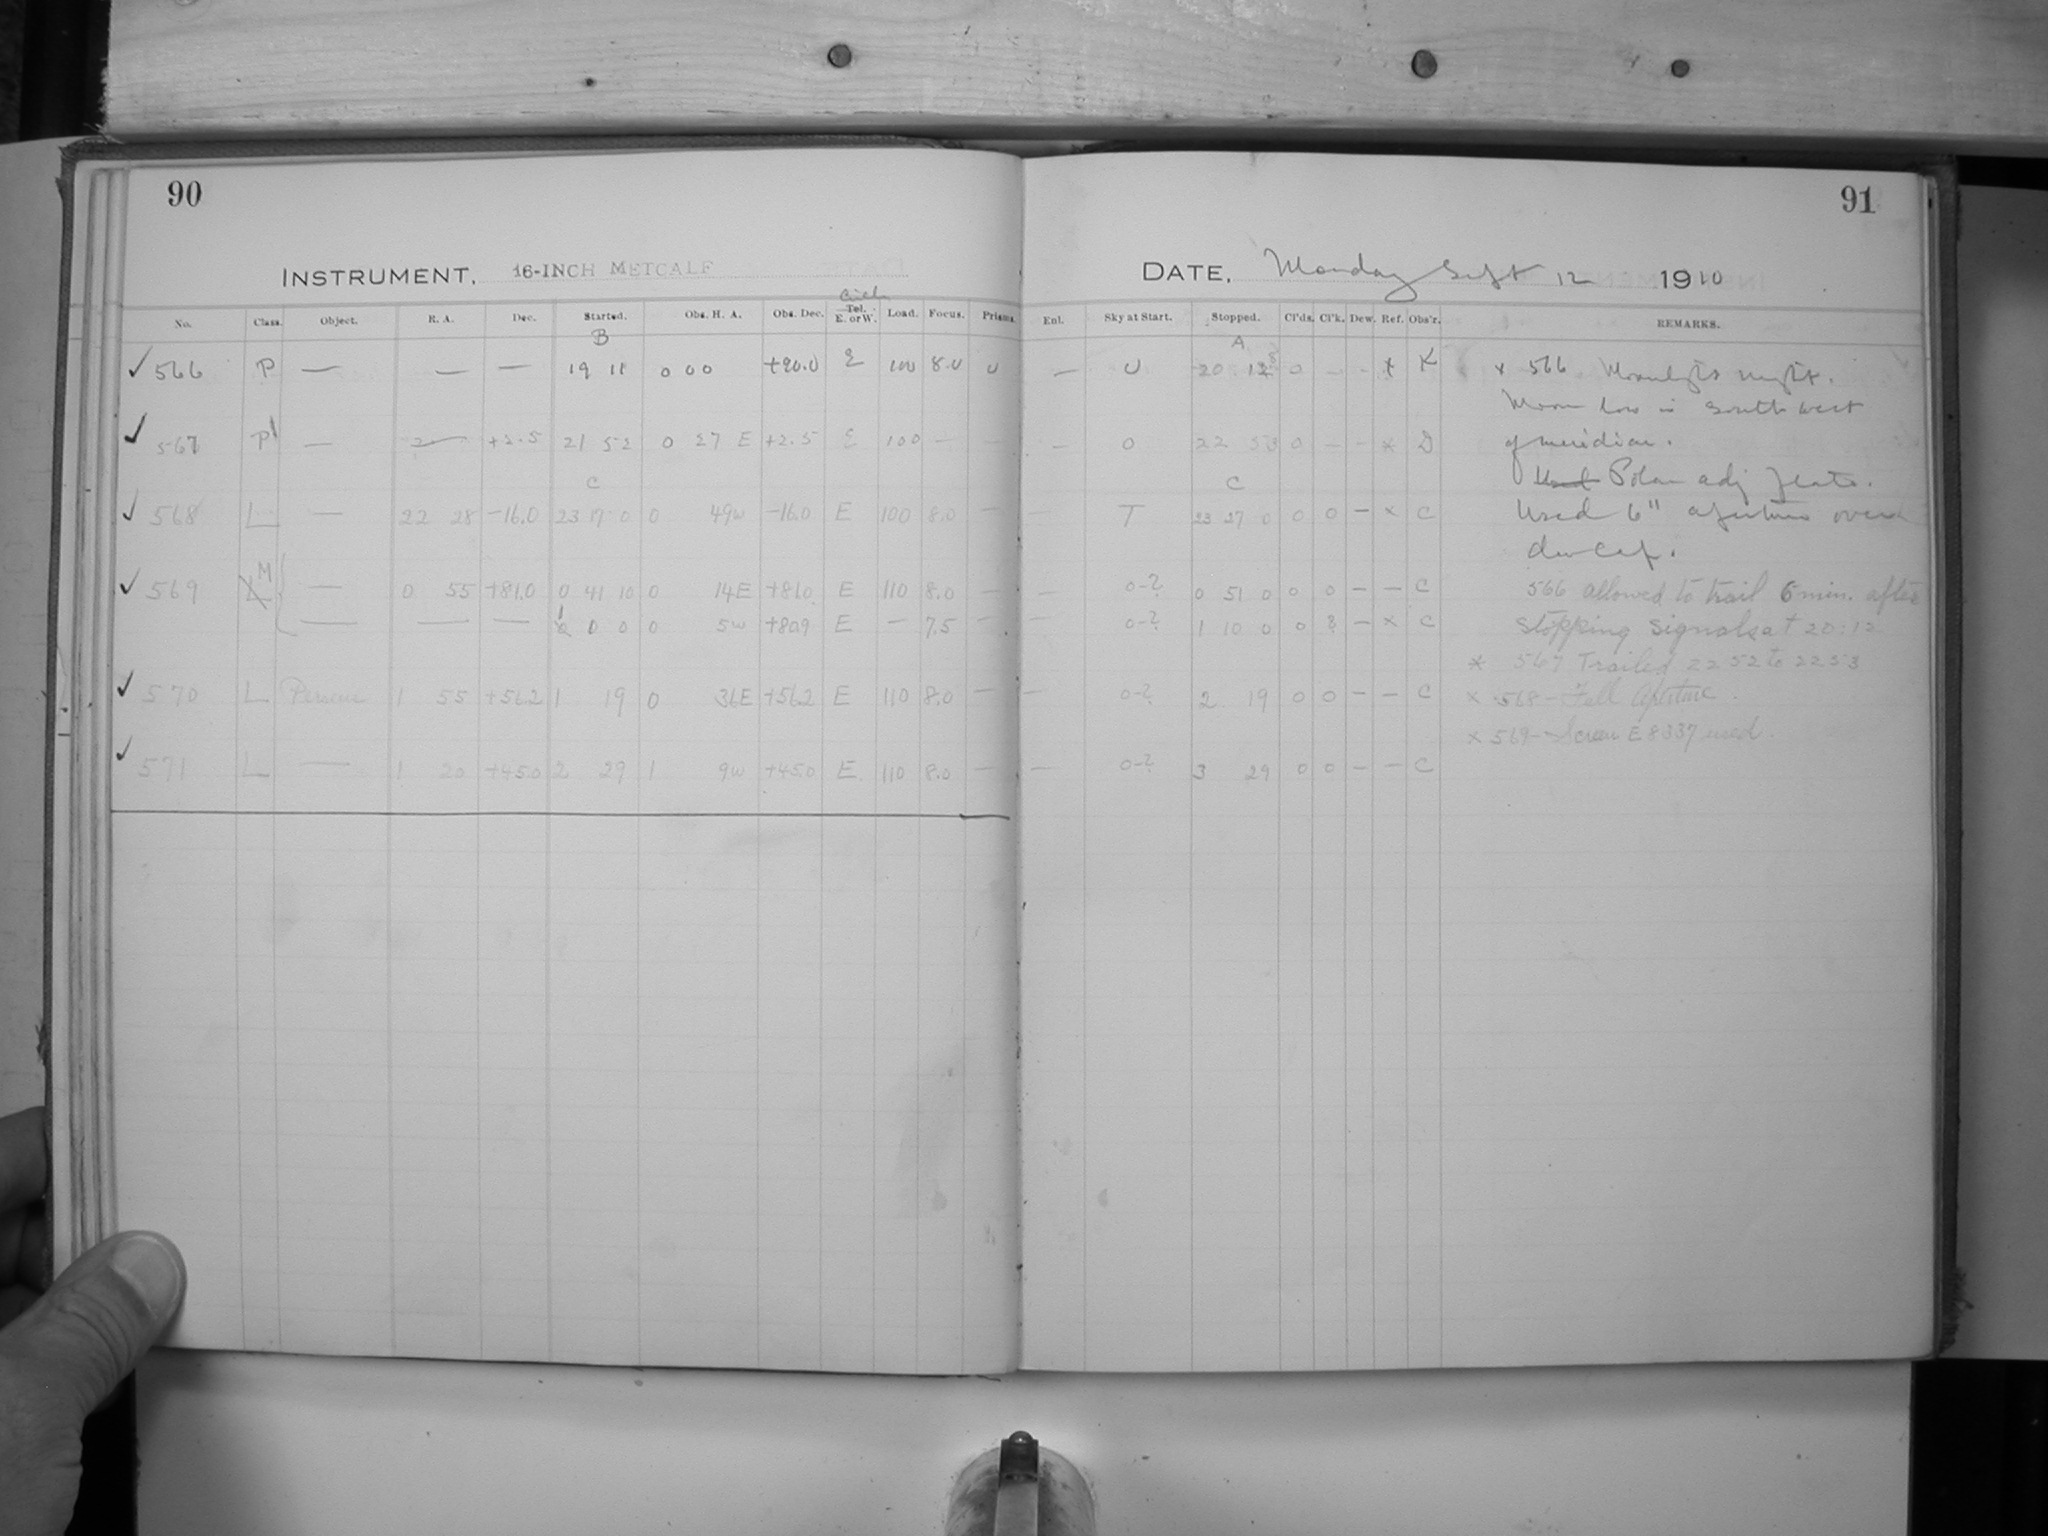 90
INSTRUMENT, 16-INCH METCALF
No. Class. Object. R. A. Dec. Started. Obs. H. A. Obs. Dec. Circle Tel. E. or W. Load. Focus. Prisms.
B
566 P — — — 19 11 0 00 +90.0 E 100 8.0 0
567 P — +2.5 21 52 0 27 E +2.5 E 100 — —
C
568 L — 22 28 -16.0 23 17 0 0 49w -16.0 E 100 8.0 —
569 M — 0 55 +81.0 0 41 10 0 14E +81.0 E 110 8.0 —
— — — 1 0 0 0 5w +80.9 E — 7.5 —
570 L Perseus 1 55 +56.2 1 19 0 36E +56.2 E 110 8.0 —
571 L — 1 20 +45.0 2 29 1 9w +45.0 E 110 8.0 —
91
DATE, Monday Sept 12 1910
Enl. Sky at Start. Stopped. Cl'ds. Cl'k. Dew. Ref. Obs'r. REMARKS.
A
— 0 20 12 0 - - x K x 566 Moonlight night.
Moon low in South West
— 0 22 53 0 — — * D of meridian.
C
Used Polar adj plate.
T 23 27 0 0 0 — x C Used 6" aperture over
dew cap.
— 0-? 0 51 0 0 0 — — C 566 allowed to trail 6 min. after
— 0-? 1 10 0 0 ? — x C stopping signals at 20:12
* 567 Trailed 22 52 to 22 53
— 0-? 2 19 0 0 — — C x 568 - Full Aperture.
x 569 - Screen E 8337 used.
— 0-? 3 29 0 0 — — C